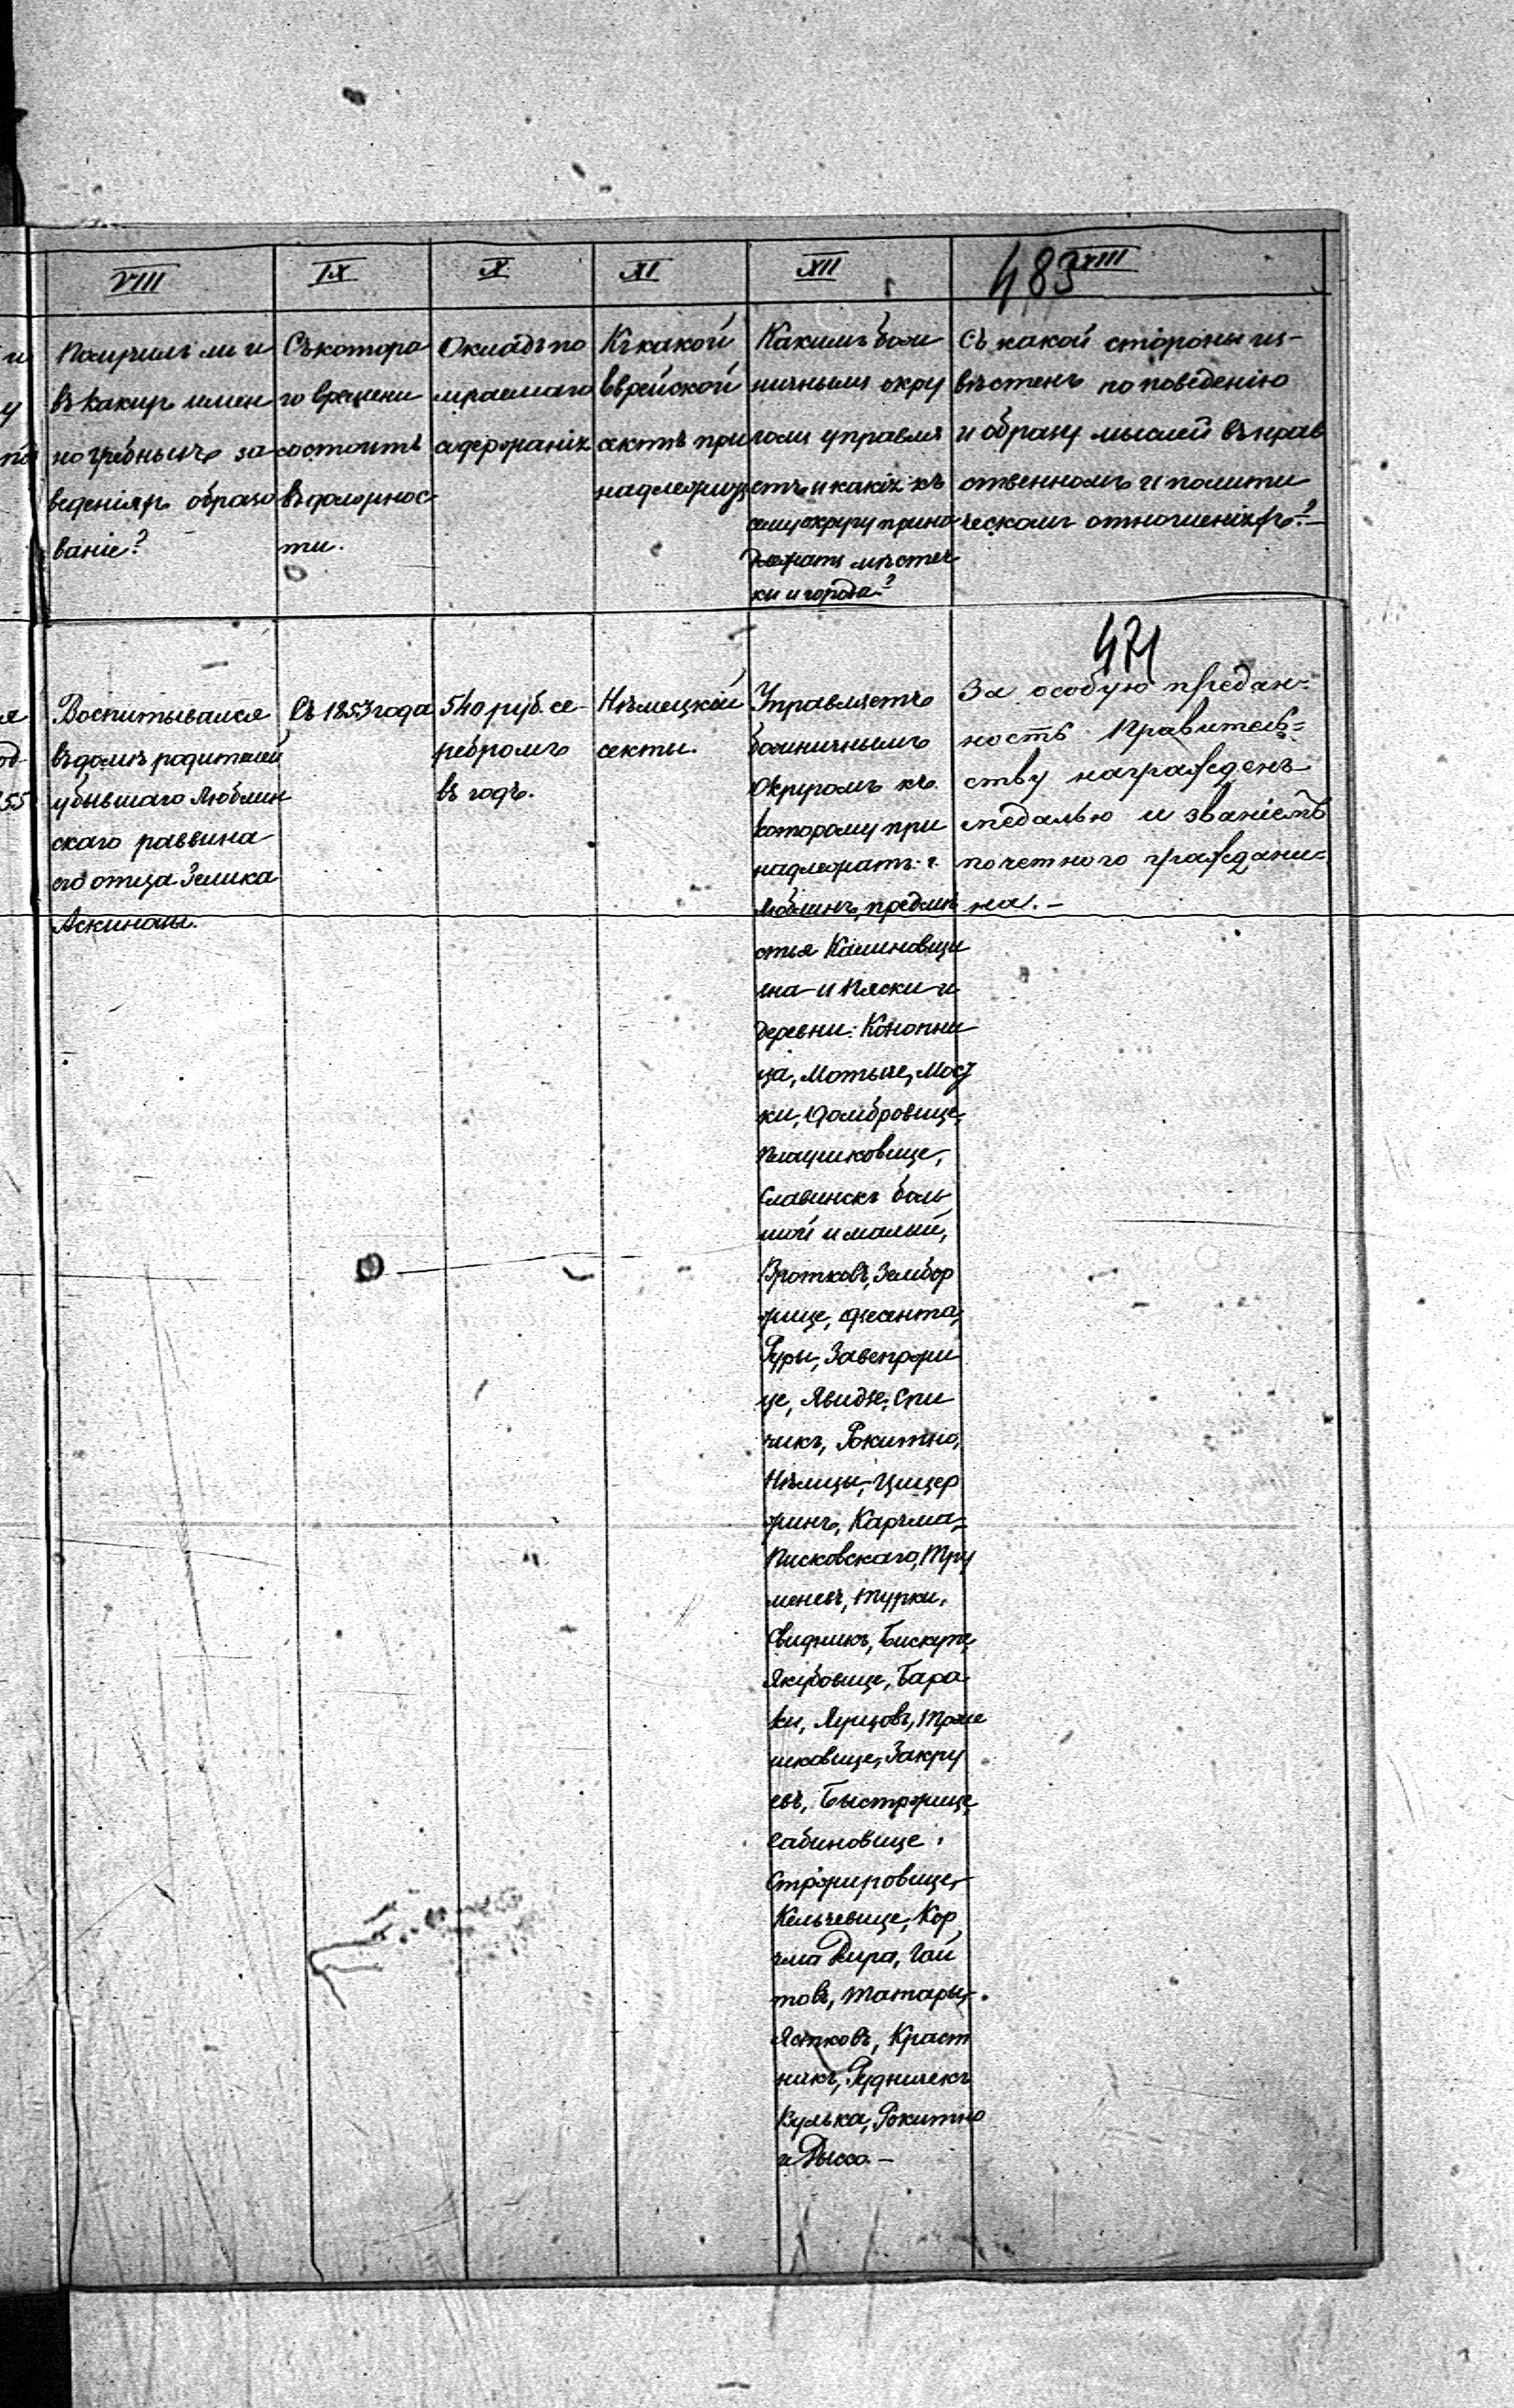 VIII
Получилъ ли и
въ какихъ имен
но учебныхъ за
веденіяхъ образо
ваніе?
IX
Съ котора
го времени
состоитъ
въ должнос
ти.
X
Окладъ по
лучаемаго
содержанія
XI
Къ какой
еврейской
сектѣ при
надлежитъ
XII
Какимъ бож
ничнымъ окру
гомъ управля
етъ и какія къ
сему округу прина
длежатъ мѣстеч
ки и города?
483 XIII
Съ какой стороны из-
вѣстенъ по поведенію
и образу мыслей въ нрав
ственномъ и полити
ческомъ отношеніяхъ?
471
Воспитывался
въ домѣ родителей
у бывшаго Люблин
скаго раввина
его отца Зелика
Ашкинази.
Съ 1853 года
540 руб. се-
ребромъ
въ годъ.
Нѣмецкой
секты.
Управляетъ
божничнымъ
округомъ къ
которому при
надлежатъ: г.
Люблинъ, предмѣ
стья Калиновщи
на и Пяски и
деревни: Конопни
ца, Мотыче, Мос
ки, Домбровице,
Плаушковице,
Славинекъ боль
шой и малый,
Вротковъ, Зембор
жице,
Руры, Завепржи
це, Явидзе, Спи
чикъ, Рокитно,
Нѣмцы, Цицер
жинъ, Карчма
Писковскаго,
Турки,
Свидникъ, Бискупе
Якубовице, Бара
ки, Лунцовъ,
шковице, Закру
евъ, Быстржице
Сабиновице
Кельчевице, Кор
чма Дзира, Гай
товъ, Татары,
Ястковъ, Крас
никъ, Рудничекъ
Вулька, Рокитно
и Дысъ.
За особую предан-
ность Правитель-
ству награжденъ
медалью и званіемъ
почетнаго граждани-
на.